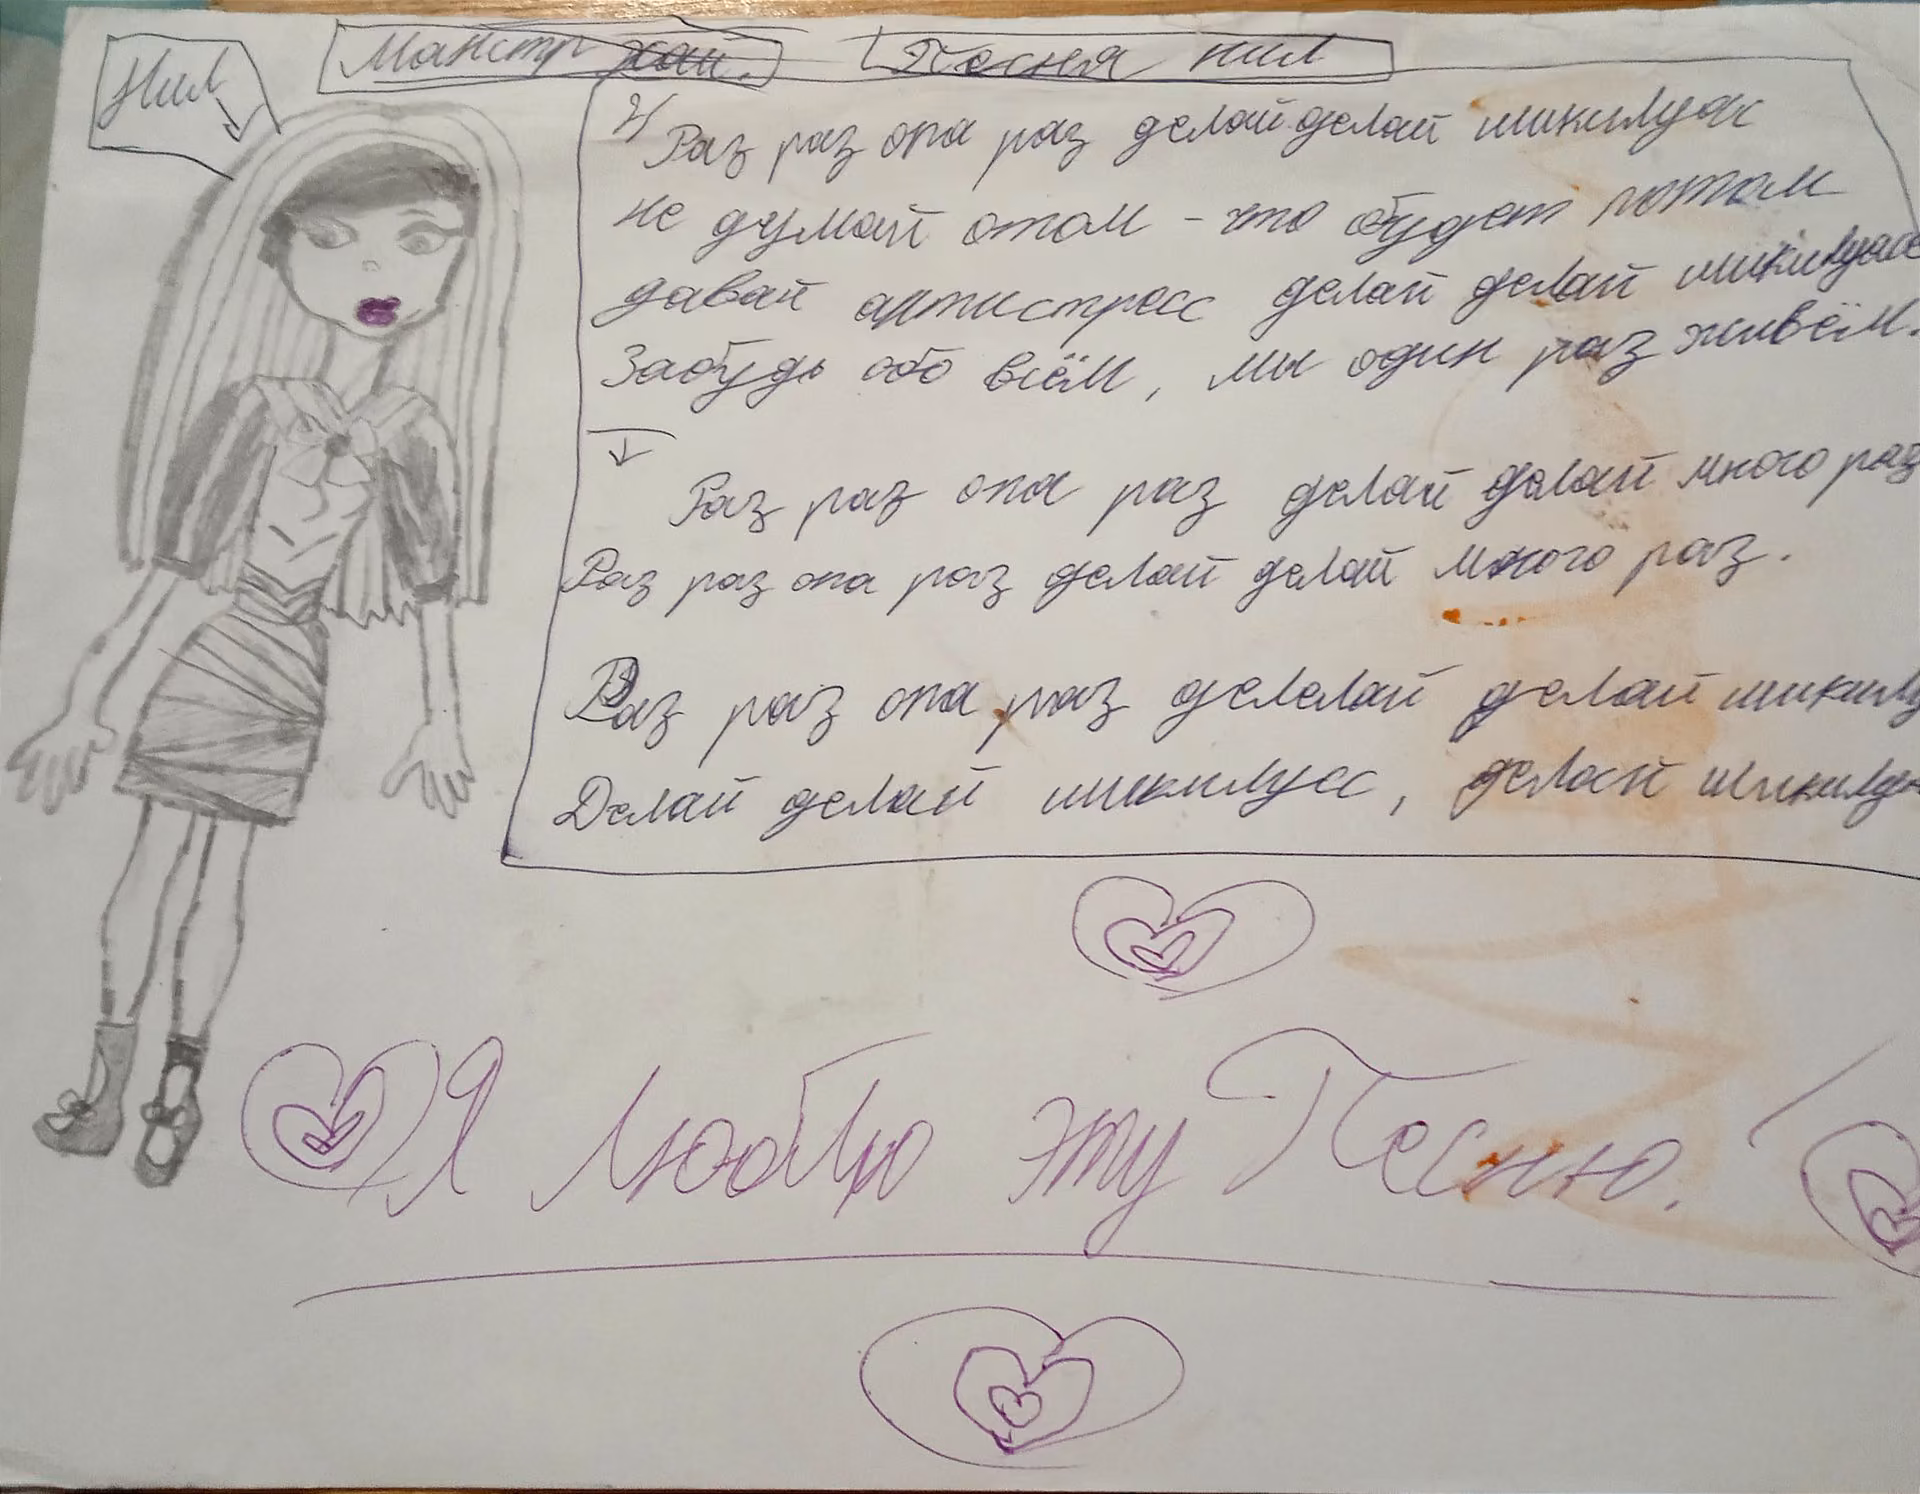 Нил
Манстр хаи.
Песня нил
Раз раз опа раз делай делай шикилуас
не думай отом - что будет потом
давай артистресс делай делай шикилуасс
Забудь обо всём, мы один раз живём.
Раз раз опа раз делай делай много раз
Раз раз опа раз делай делай много раз.
Раз раз опа раз делелай делай шикилу
Делай делай шикилуасс, делай шикилуа
Я люблю эту Песню.